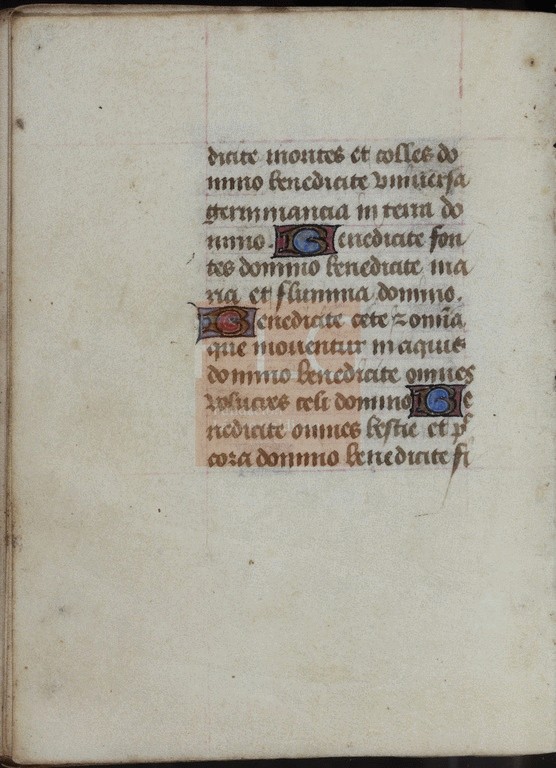 dicite montes et colles do
mino benedicite vniuersa
germinancia in terra do
mino. Benedicite fon
tes domino benedicite ma
ria et flumina domino.
Benedicite cete ⁊ om̄ia
que mouentur in aquis
domino benedicite omnes
volucres celi domino Be
nedicite omnes bestie et p
cora domino benedicite fi